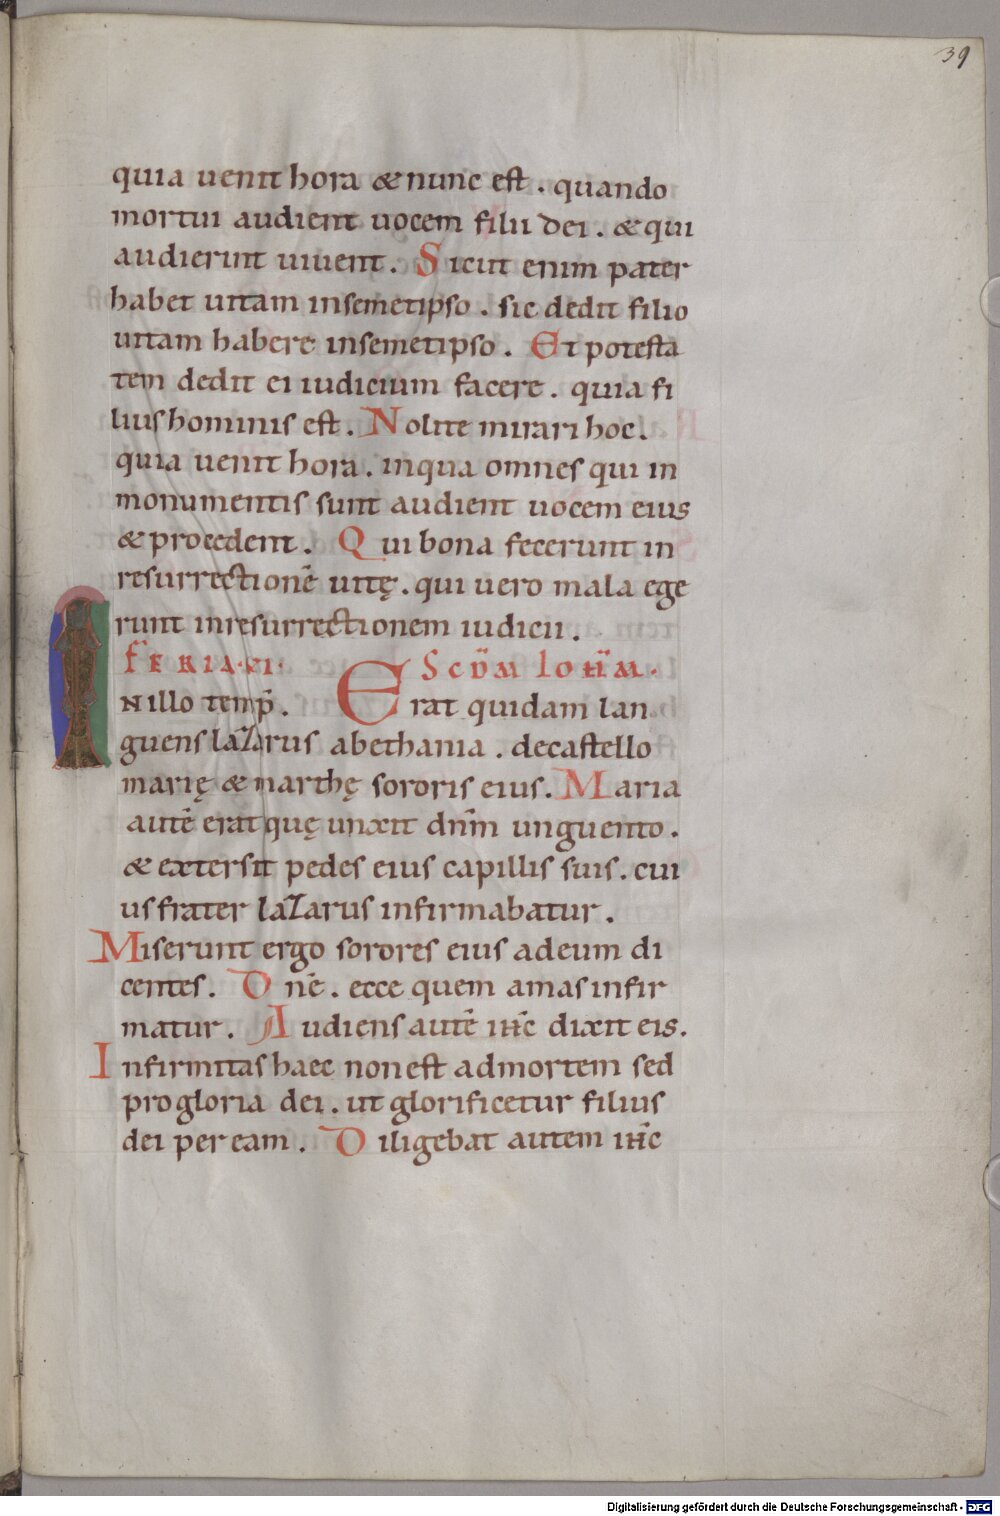 39
quia uenit hora & nunc est . quando
mortui audient uocem filii dei . & qui
audierint uiuent . Sicut enim pater
habet uitam insemetipso . sic dedit filio
uitam habere insemetipso . Et potesta
tem dedit ei iudicium facere . quia fi
lius hominis est . Nolite mirari hoc .
quia uenit hora . inqua omnes qui in
monumentis sunt audient uocem eius
& procedent . Qui bona fecerunt in
resurrectionē uitę . qui uero mala ege
runt inresurrectionem iudicii .
FERIA·VI· SCD̄M IOHM̄·
IN illo temp̄ . Erat quidam lan
guens lazarus abethania . decastello
marię & marthę sororis eius . Maria
autē erat quę unxit dnm̄ unguento .
& extersit pedes eius capillis suis . cui
us frater lazarus infirmabatur .
Miserunt ergo sorores eius adeum di
centes . Dnē . ecce quem amas infir
matur . Audiens autē ihc̄ dixit eis .
Infirmitas haec non est admortem sed
pro gloria dei . ut glorificetur filius
dei per eam . Diligebat autem ihc̄
Digitalisierung gefördert durch die Deutsche Forschungsgemeinschaft - DFG